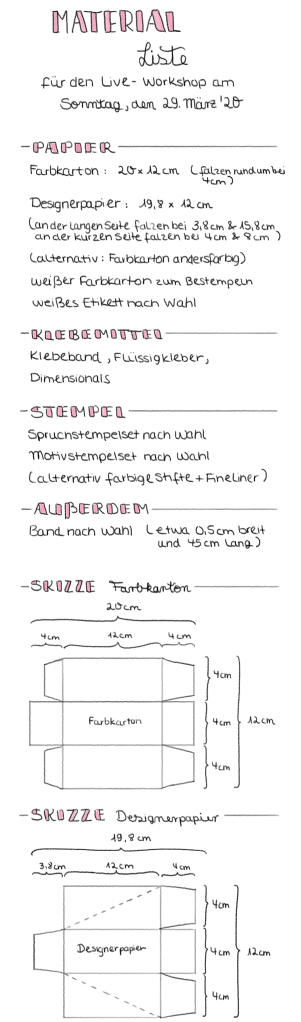 MATERIAL
Liste
für den Live-Workshop am
Sonntag, den 29. März '20
PAPIER
Farbkarton: 20 x 12 cm (falzen rundum bei
4cm)
Designerpapier: 19,8 x 12 cm
(an der langen Seite falzen bei 3,8cm & 15,8cm,
an der kurzen Seite falzen bei 4cm & 8cm)
(alternativ: Farbkarton andersfarbig)
weißer Farbkarton zum Bestempeln
weißes Etikett nach Wahl
KLEBEMITTEL
Klebeband, Flüssigkleber,
Dimensionals
STEMPEL
Spruchstempelset nach Wahl
Motivstempelset nach Wahl
(alternativ farbige Stifte + Fineliner)
AUßERDEM
Band nach Wahl (etwa 0,5cm breit
und 45cm lang)
SKIZZE Farbkarton
20cm
4cm 12cm 4cm
4cm
Farbkarton 4cm 12cm
4cm
SKIZZE Designerpapier
19,8cm
3,8cm 12cm 4cm
4cm
Designerpapier 4cm 12cm
4cm